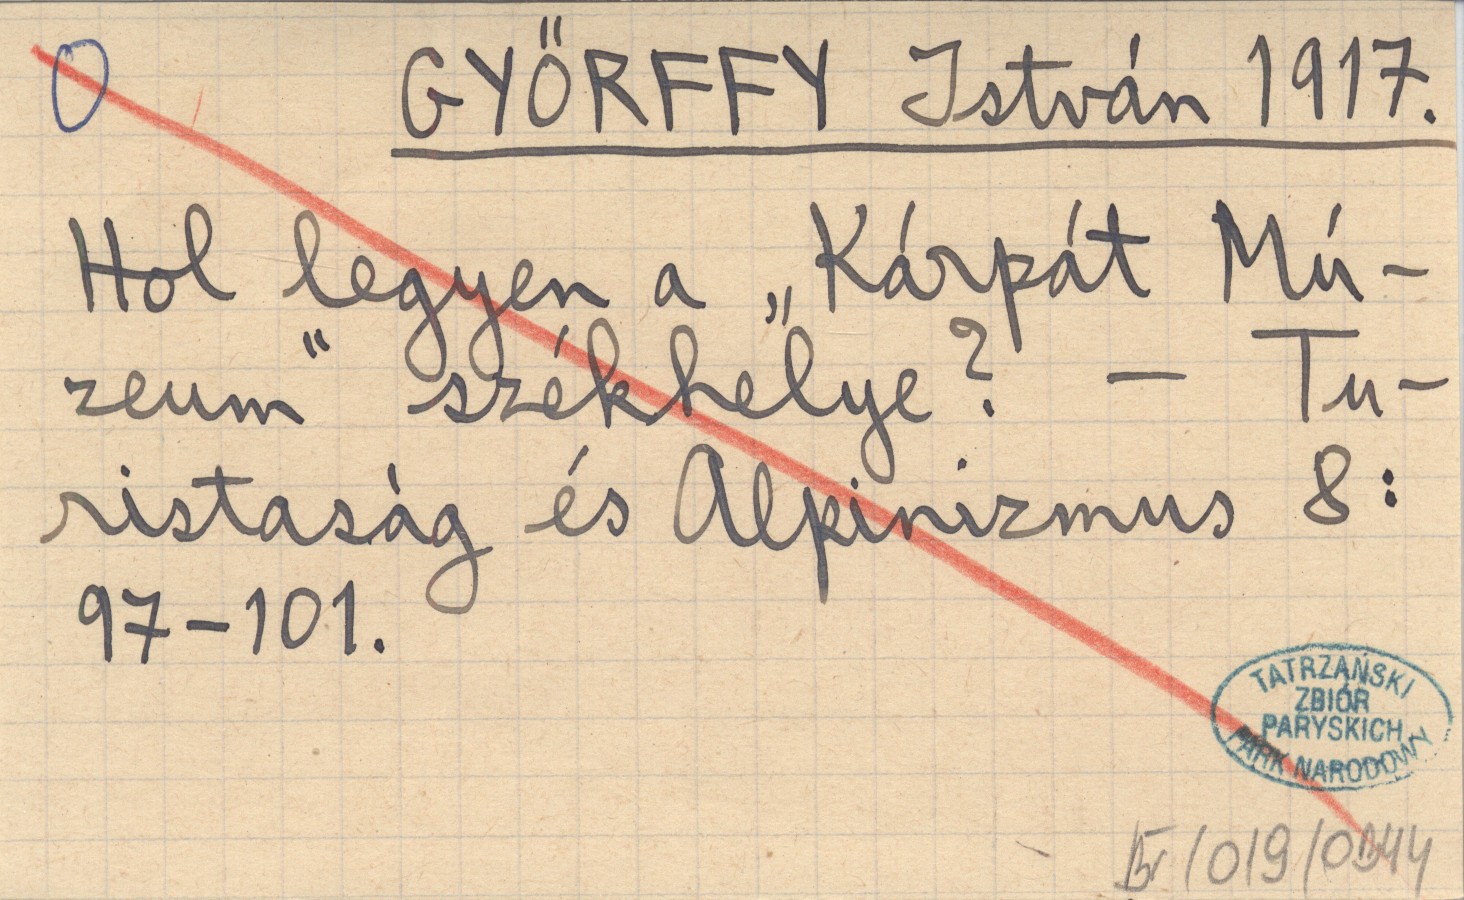 O GYŐRFFY István 1917.
Hol legyen a „Kárpát Mú-
zeum" székhelye? — Tu-
ristaság és Alpinizmus 8:
97-101.
TATRZAŃSKI
ZBIÓR
PARYSKICH
PARK NARODOWY
/019/